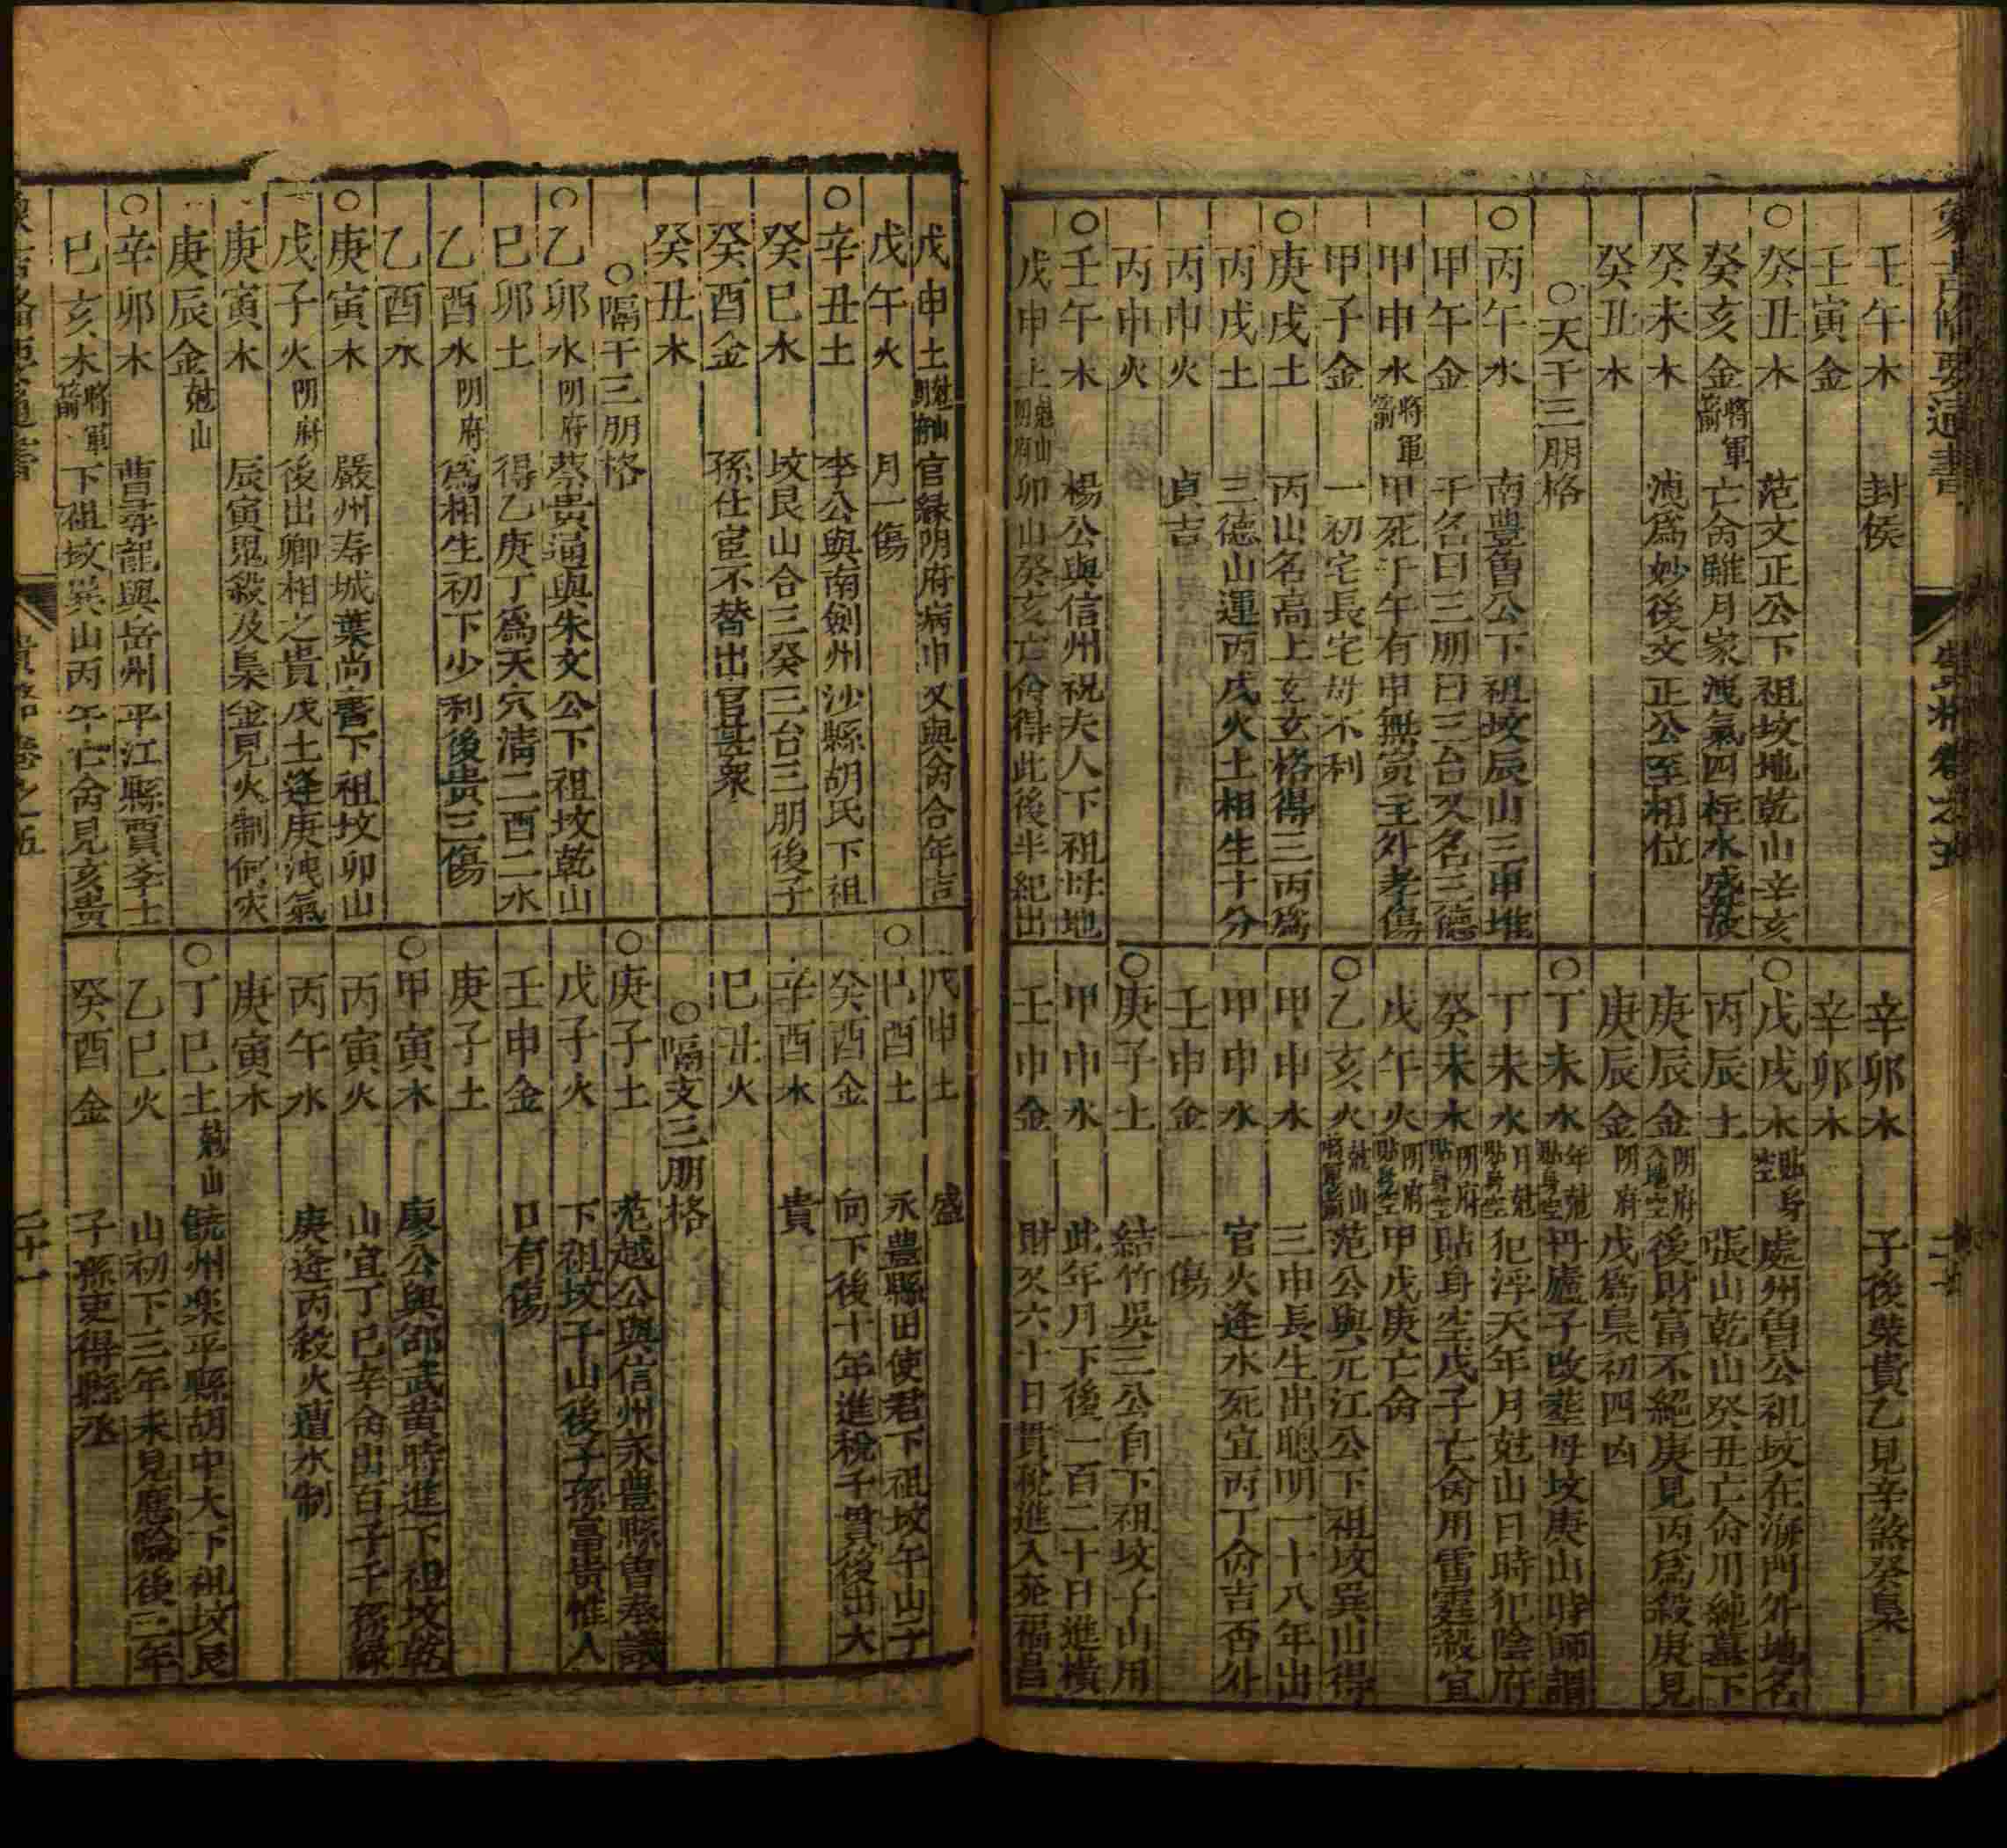 象吉備要通書
貴格卷之五
壬午木 封侯
壬寅金
○癸丑木 范文正公下祖坟地乾山辛亥
癸亥金 將軍箭 亡命雖月家洩氣四柱水盛發
癸未木 洩爲妙後文正公至相位
癸丑木
○天干三朋格
○丙午水 南豊魯公下祖坟辰山三甲堆
甲午金 干名曰三朋曰三台又名三德
甲申水 將軍箭 甲死于午有甲無寅主外孝傷
甲子金 一初宅長宅母不利
○庚戌土 丙山名高上玄玄格得三丙爲
丙戌土 三德山運丙戌火土相生十分
丙申火 貞吉
丙申火
○壬午木 楊公與信州祝夫人下祖母地
戊申土 尅山阴府 卯山癸亥亡命得此後半紀出
辛卯木 子後柴貴乙見辛煞癸梟
辛卯木
○戊戌木 貼身空 處州曾公祖坟在海門外地名
丙辰土 張山乾山癸丑亡命用純墓下
庚辰金 阴府入地空 後財富不絕庚見丙爲殺庚見
庚辰金 阴府 戊爲梟初四凶
○丁未水 年尅貼身空 丹廬子改葬母坟庚山時師謂
丁未水 月尅貼身空 犯浮天年月尅山日時犯陰府
癸未木 阴府貼身空 貼身空戊子亡命用雷霆殺宜
戊午火 阴府貼身空 甲戊庚亡命
○乙亥火 尅山 范公與元江公下祖坟巽山得
甲申水 三申長生出聰明一十八年出
甲申水 官火逢水死宜丙丁命吉否外
壬申金 一傷
○庚子土 結竹吳三公自下祖坟子山用
甲申水 此年月下後一百二十日進橫
壬申金 財又六十日貫稅進入死福昌
戊申土 尅山阴府 官緑阴府病巾又與命合年吉
戊午火 月一傷
○辛丑土 李公與南劍州沙縣胡氏下祖
癸巳水 坟艮山合三癸三台三朋後子
癸酉金 孫仕宦不替出官甚衆
癸丑木
○隔干三朋格
○乙卯水 阴府 蔡貴通與朱文公下祖坟乾山
巳卯土 得乙庚丁爲天穴清二酉二水
乙酉水 阴府 爲相生初下少利後贵三傷
乙酉水
○庚寅木 嚴州寿城葉尚書下祖坟卯山
戊子火 阴府 後出卿相之貴戊土逢庚洩氣
庚寅木 辰寅鬼殺及梟金見火制何灾
庚辰金 尅山
○辛卯木 曹尋龍與岳州平江縣賈李士
巳亥木 將軍箭 下祖坟巽山丙午亡命見亥貴
戊申土 盛
○巳酉土 永豊縣田使君下祖坟午山子
癸酉金 向下後十年進税千貫後出大
辛酉木 貴
巳丑火
○隔支三朋格
○庚子土 范越公與信州永豊縣曾奉議
戊子火 下祖坟子山後子孫富贵惟人
壬申金 口有傷
庚子土
○甲寅水 廖公與邵武黄時進下祖坟乾
丙寅火 山宜丁巳辛命出百子千孫緑
丙午水 庚逢丙殺火遭水制
庚寅木
○丁巳土 尅山 饒州楽平縣胡中大下祖坟艮
乙巳火 山初下三年未見應驗後三年
癸酉金 子孫吏得縣丞
貴格卷之五
二十一